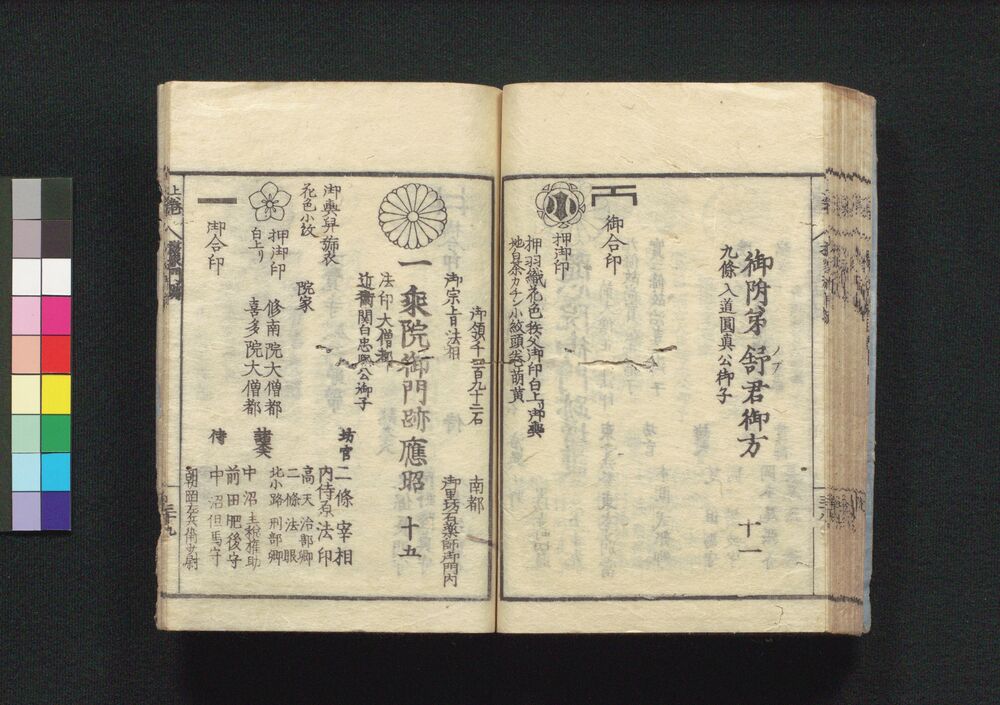 御附弟 舒君御方 十一
ノブ
九條入道圓真公御子
御合印
押御印
押羽織花色秩父御印白上リ御輿
地白茶カチン小紋頭巻萌黄
御領千四百九十二石
南都
御里坊石薬師御門内
御宗旨法相
一乗院御門跡應昭 十五
法印大僧都
近衞關白忠熈公御子
御輿舁篩衣
花色小紋
押御印
白上リ
御合印
院家
修南院大僧都
喜多院大僧都
坊官
二條宰相
内侍原法印
高天治部卿
二條法眼
北小路刑部卿
諸大夫
中沼主税権助
前田肥後守
侍
中沼但馬守
上巻